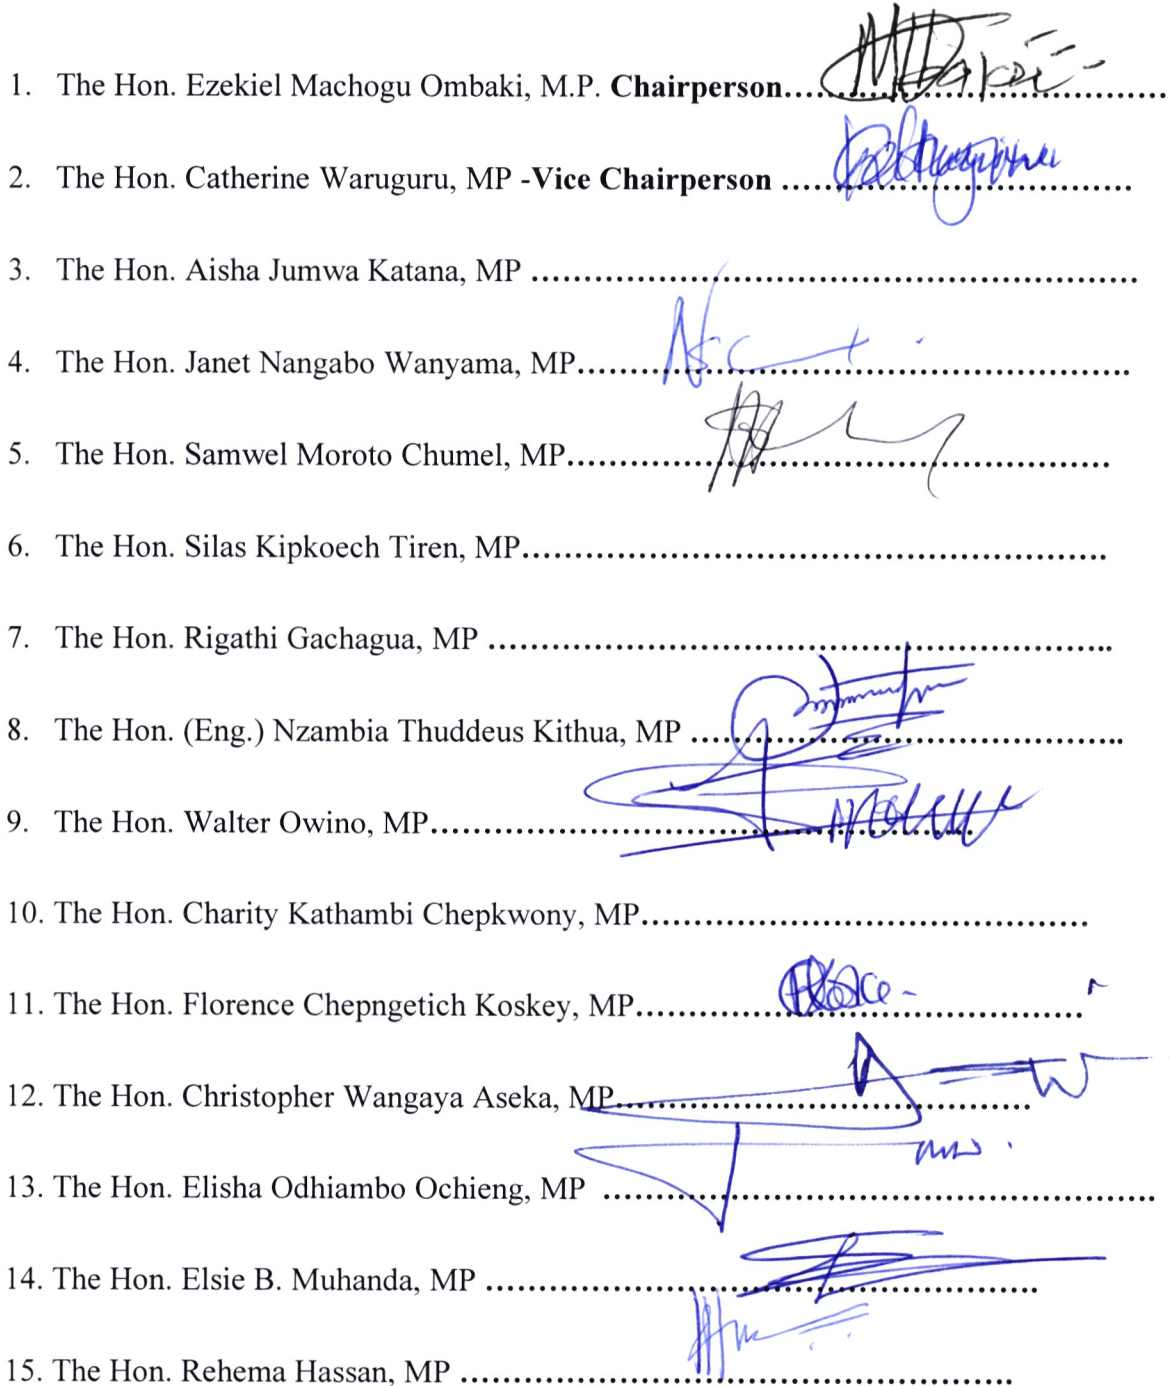 1. The Hon. Ezekiel Machogu Ombaki, M.P. Chairperson....................................
2. The Hon. Catherine Waruguru, MP -Vice Chairperson .................................
3. The Hon. Aisha Jumwa Katana, MP ..........................................................
4. The Hon. Janet Nangabo Wanyama, MP.....................................................
5. The Hon. Samwel Moroto Chumel, MP....................................................
6. The Hon. Silas Kipkoech Tiren, MP........................................................
7. The Hon. Rigathi Gachagua, MP ............................................................
8. The Hon. (Eng.) Nzambia Thuddeus Kithua, MP .........................................
9. The Hon. Walter Owino, MP....................................................
10. The Hon. Charity Kathambi Chepkwony, MP...........................................
11. The Hon. Florence Chepngetich Koskey, MP...........................................
12. The Hon. Christopher Wangaya Aseka, MP........................................
13. The Hon. Elisha Odhiambo Ochieng, MP .....................................................
14. The Hon. Elsie B. Muhanda, MP .....................................................
15. The Hon. Rehema Hassan, MP .....................................................